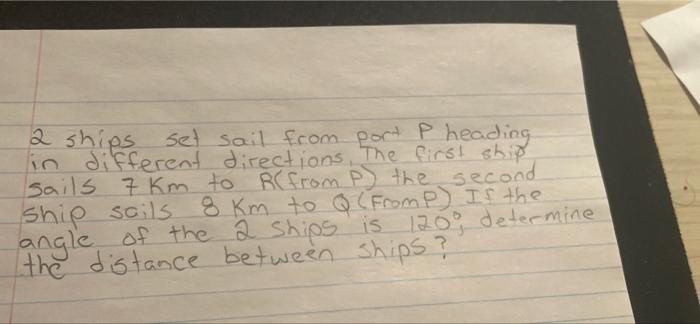 2 ships set sail from port P heading
in different directions. The first ship
sails 7 Km to R(from P) the second
ship sails 8 Km to Q (From P) If the
angle of the 2 ships is 120°, determine
the distance between ships?